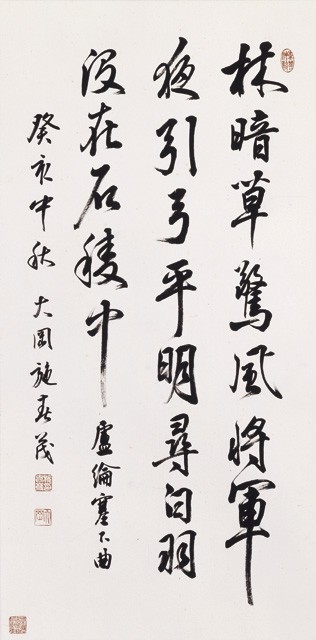 林暗草驚風將軍
夜引弓平明尋白羽
沒在石稜中 盧綸塞下曲
癸亥中秋 大園施春茂